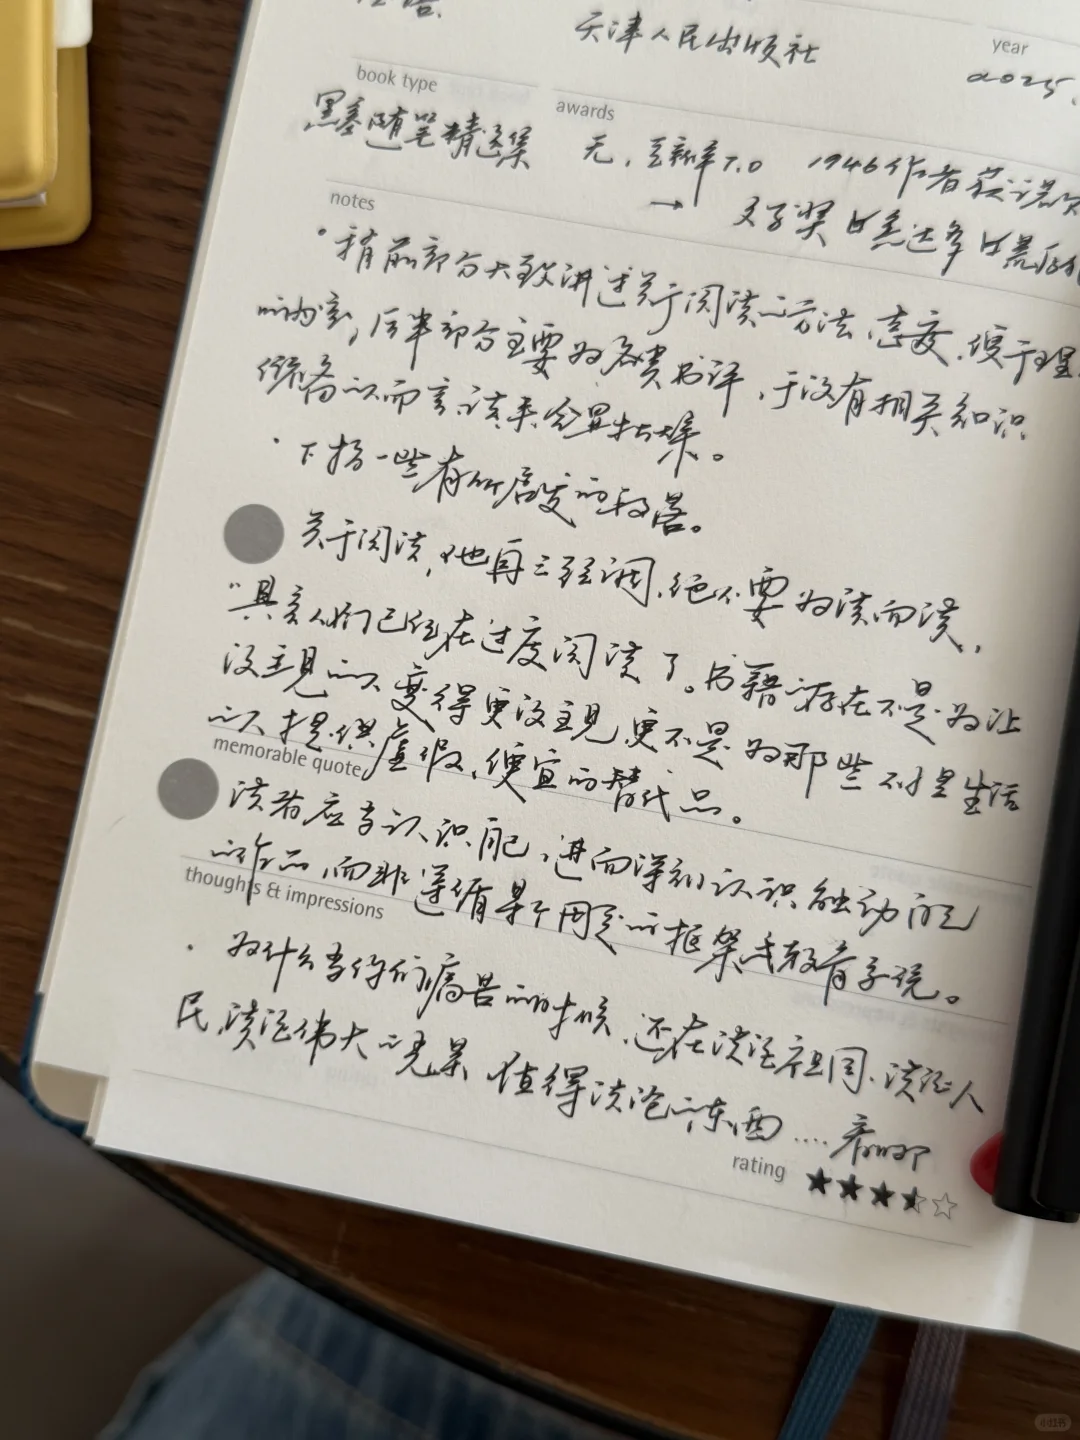 天津人民出版社
year
2025.
book type
黑塞随笔精选集
awards
无，豆瓣7.0 1946作者获诺
→ 文学奖
notes
·稍前部分大致讲述关于阅读的方法、态度、便于理
的内容，后半部分主要为各类书评，于没有相关知识
储备的人而言读来会显枯燥。
·下摘一些有所启发的段落。
关于阅读，他再三强调，绝不要为读而读，
“其实人们已经在过度阅读了。书籍的存在不是为让
没主见的人变得更没主见，更不是为那些不会生活
的人提供虚假、便宜的替代品。
memorable quote
读者应当认识自己，进而深刻认识触动自己
的作品，而非遵循某个固定的框架或教育学说。
thoughts & impressions
·为什么当你们痛苦的时候，还在谈论祖国、谈论人
民，谈论伟大的先辈 值得谈论的东西....
rating